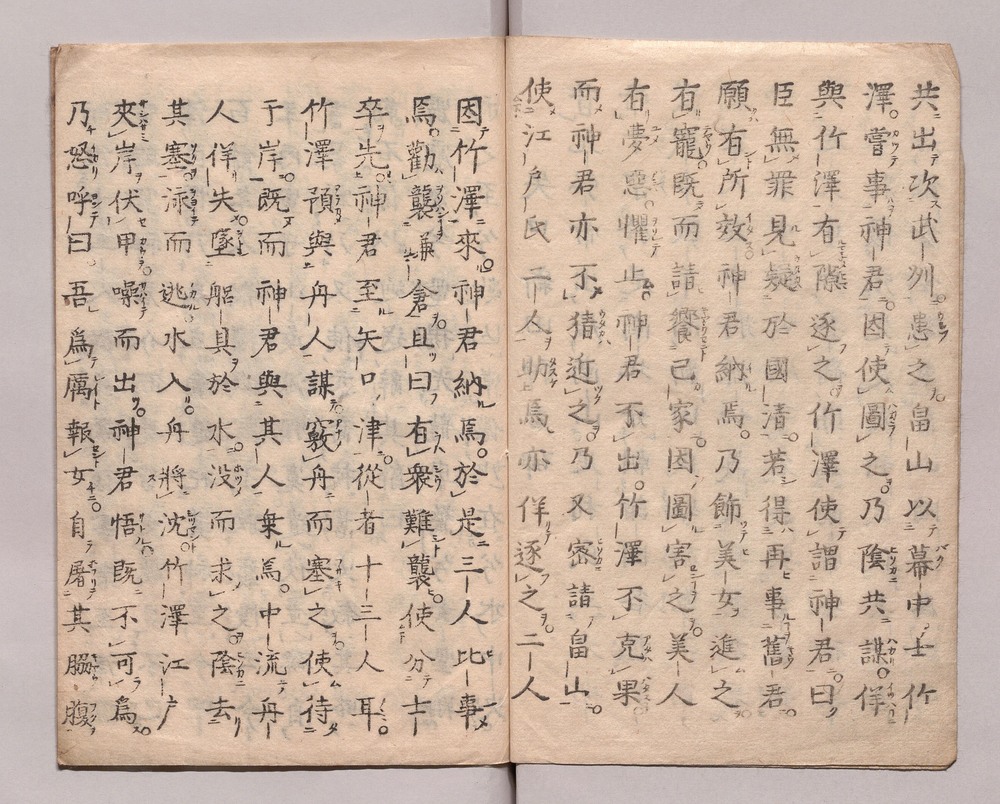 共出次武州患之畠山以幕中士竹
澤嘗事神君因使圖之乃陰共謀佯
與竹澤有隙逐之竹澤使謂神君曰
臣無罪見疑於國清若得再事舊君
願有所效神君納焉乃飾美女進之
右寵既而請饗己家因圖害之美人
右夢惡懼止神君不出竹澤不克果
而神君亦不猜近之乃又密請畠山
使江戸氏二人助焉亦佯逐之二人
因竹澤來神君納焉於是三人比事
焉勸襲鎌倉且曰有衆難襲使分士
卒先神君至矢口津從者十三人耳
竹澤預與舟人謀竅舟而塞之使待
于岸既而神君與其人乗焉中流舟
人佯失墜艄具於水没而求之陰去
其塞泳而逃水入舟將沈竹澤江戸
夾岸伏甲噪而出神君悟既不可為
乃怒呼曰吾爲厲報女自屠其腸腹